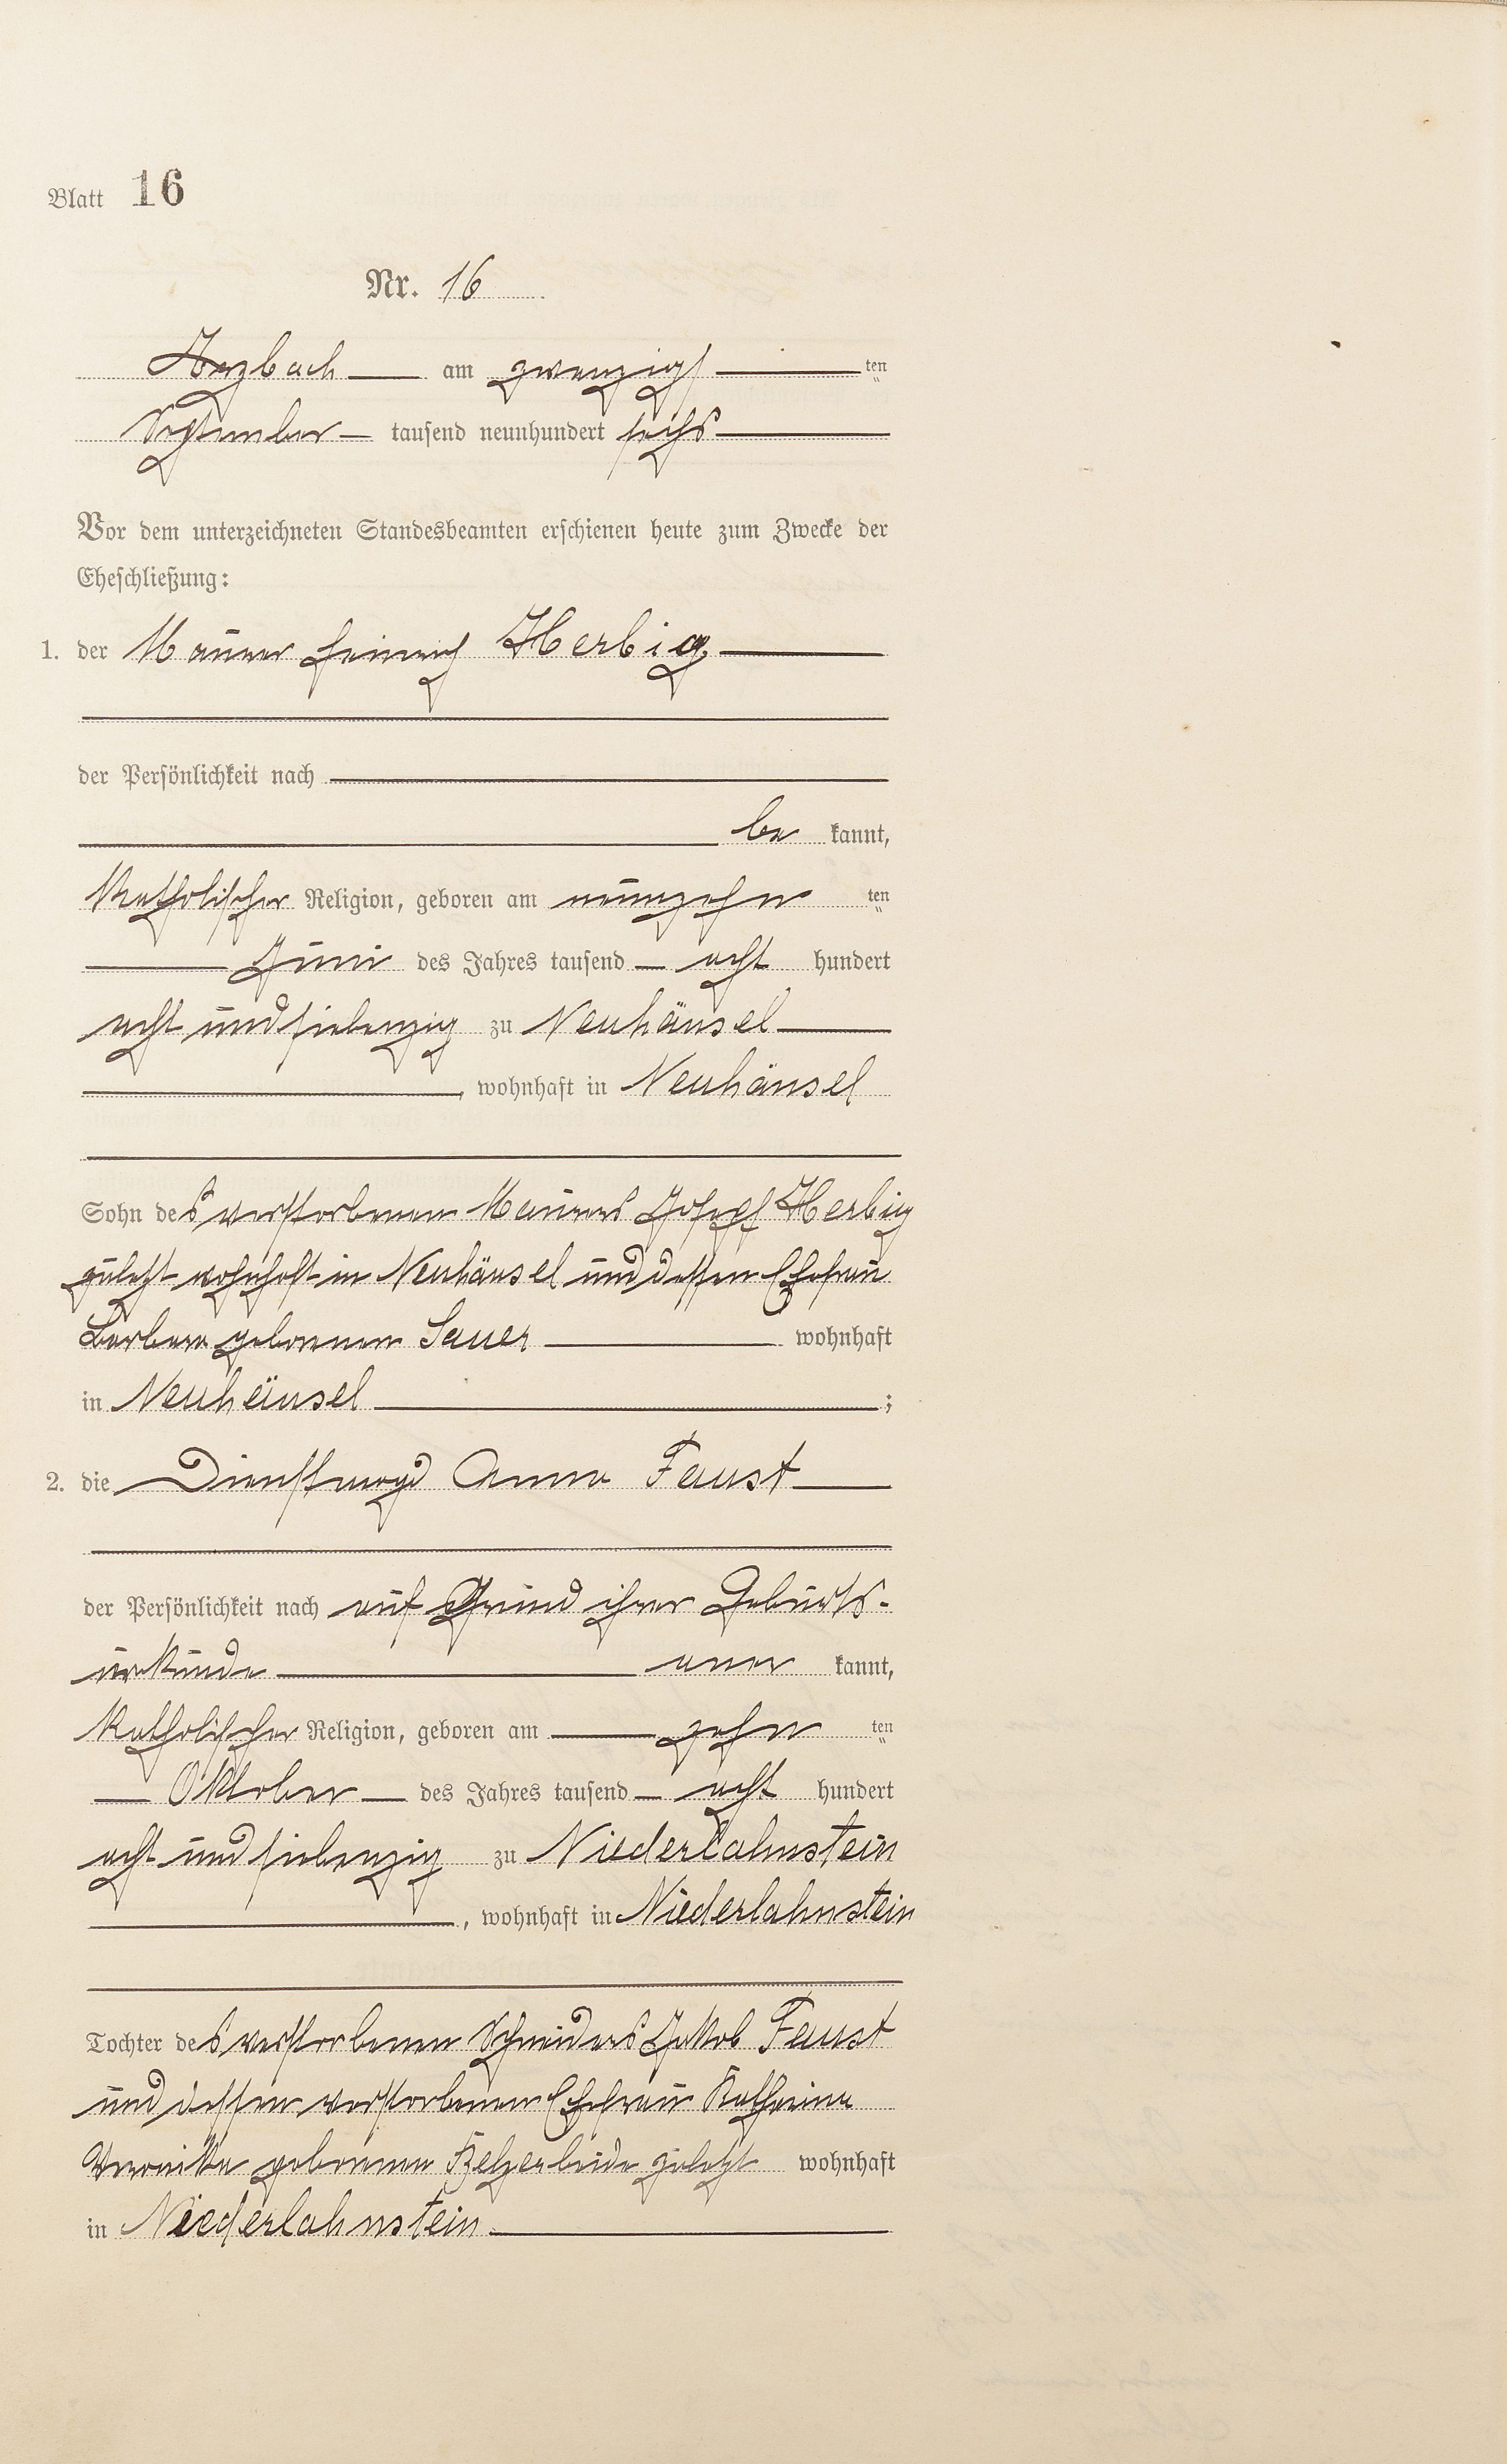 Blatt 16
Nr. 16
Arzbach am zwanzigsten
September tausend neunhundert sechs
Vor dem unterzeichneten Standesbeamten erschienen heute zum Zwecke der
Eheschließung:
1. der Maurer Heinrich Herbig
der Persönlichkeit nach
be kannt,
katholischer Religion, geboren am neunzehn ten
Juni des Jahres tausend acht hundert
acht und siebenzig zu Neuhäusel
, wohnhaft in Neuhäusel
Sohn des verstorbenen Maurers Josepf Herbig
zuletzt wohnhaft in Neuhäusel und dessen Ehefrau
Barbara geborenen Sauer wohnhaft
in Neuhäusel ;
2. die Dienstmagd Anna Faust
der Persönlichkeit nach auf Grund ihrer Geburts-
urkunde aner kannt,
katholischer Religion, geboren am zehn ten
Oktober des Jahres tausend acht hundert
acht und siebenzig zu Niederlahnstein
, wohnhaft in Niederlahnstein
Tochter des verstorbenen Schneiders Jakob Faust
und dessen verstorbenen Ehefrau Katharina
Veronika geborenen beide zuletzt wohnhaft
in Niederlahnstein